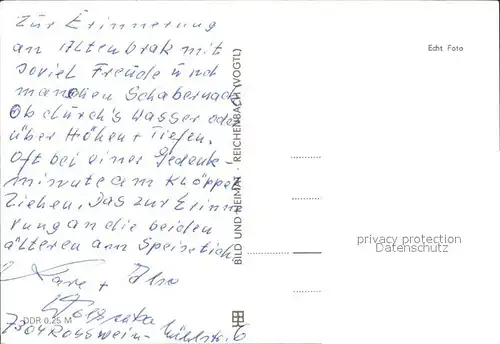 Zur Erinnerung
an Altenbrak mit
soviel Freude und
manchen Schabernack
Ob durch's Wasser oder
über Höhen + Tiefen.
Oft bei einer Gedenk-
minute am Klöppel
Ziehen. Das zur Erinne
rung an die beiden
älteren am Speisetich
Echt Foto
BILD UND HEIMAT · REICHENBACH (VOGTL)
privacy protection
DDR 0,25 M
7304 Rosswein